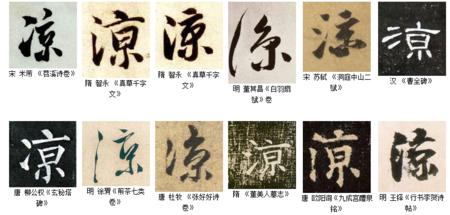 涼
宋 米芾 《苕溪诗卷》
涼
隋 智永 《真草千字
文》
涼
隋 智永 《真草千字
文》
涼
明 董其昌《白羽扇
赋》卷
涼
宋 苏轼 《洞庭中山二
赋》
涼
汉 《曹全碑》
涼
唐 柳公权《玄秘塔
碑》
涼
明 徐渭《煎茶七类
卷》
涼
唐 杜牧 《张好好诗
卷》
涼
隋 《董美人墓志》
涼
唐 欧阳询《九成宫醴泉
铭》
涼
明 王铎《行书李贺诗
帖》